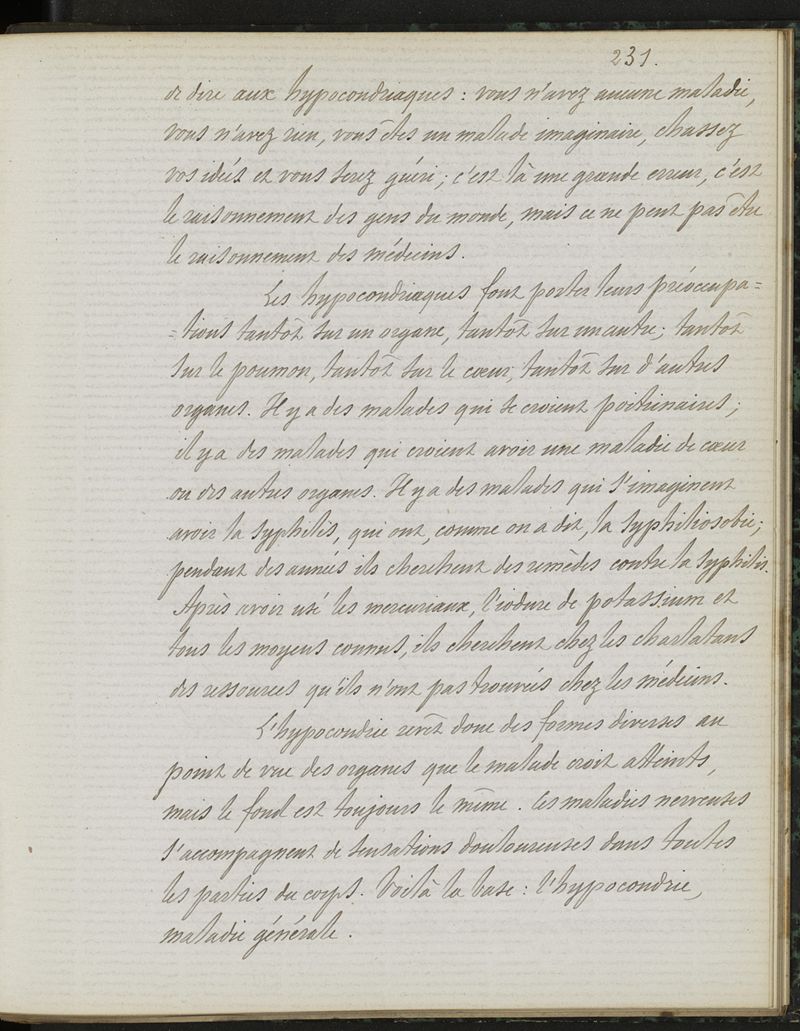 231.
de dire aux hypocondriaques : vous n'avez aucune maladie,
vous n'avez rien, vous êtes un malade imaginaire, chassez
vos idées et vous serez guéri ; c'est là une grande erreur, c'est
le raisonnement des gens du monde, mais ce ne peut pas être
le raisonnement des médecins.
Les hypocondriaques font porter leurs préoccupa=
=tions tantôt sur un organe, tantôt sur un autre ; tantôt
sur le poumon, tantôt sur le cœur, tantôt sur d'autres
organes. Il y a des malades qui se croient poitrinaires ;
il y a des malades qui croient avoir une maladie de cœur
ou des autres organes. Il y a des malades qui s'imaginent
avoir la syphilis, qui ont, comme on a dit, la syphiliosobie ;
pendant des années ils cherchent des remèdes contre la syphilis.
Après avoir usé les mercuriaux, l'iodure de potassium et
tous les moyens connus, ils cherchent chez les charlatans
des ressources qu'ils n'ont pas trouvées chez les médecins.
L'hypocondrie revêt donc des formes diverses au
point de vue des organes que le malade croit atteints,
mais le fond est toujours le même. Ces maladies nerveuses
s'accompagnent de sensations douloureuses dans toutes
les parties du corps. Voilà la base : l'hypocondrie,
maladie générale.